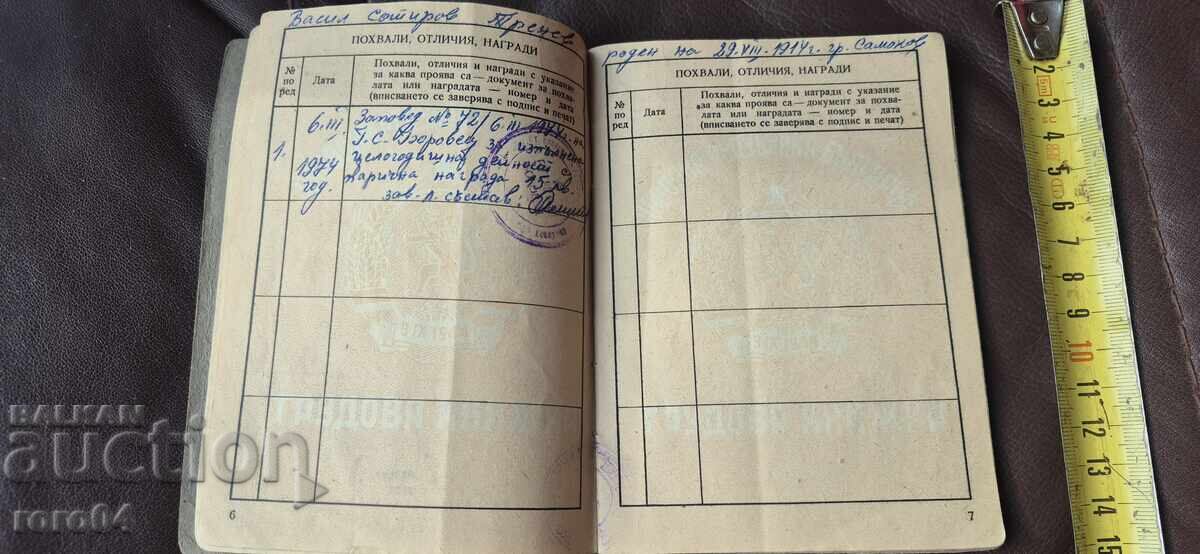 Васил Сотиров Тренев
ПОХВАЛИ, ОТЛИЧИЯ, НАГРАДИ
№ по ред
Дата
Похвали, отличия и награди с указание
за каква проява са — документ за похва-
лата или наградата — номер и дата
(вписването се заверява с подпис и печат)
1.
6.III.
1974
год.
Заповед № 72/6.III.1974г. на
Г.С.
за изпълнена
целогодишна дейност с
парична награда 15 лв.
зав. л. състав:
6
роден на 29.VIII.1914г. гр. Самоков
ПОХВАЛИ, ОТЛИЧИЯ, НАГРАДИ
№ по ред
Дата
Похвали, отличия и награди с указание
за каква проява са — документ за похва-
лата или наградата — номер и дата
(вписването се заверява с подпис и печат)
7
BALKAN
auction
roro04
2
3
4
5
6
7
8
9
10
11
12
13
14
15